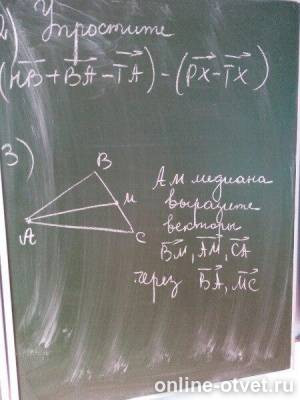 2) Упростите
(HB + BA - TA) - (PX - TX)
3)
B
M
A
C
AM медиана
выразите
векторы
BM, AM, CA
через BA, MC
online-otvet.ru